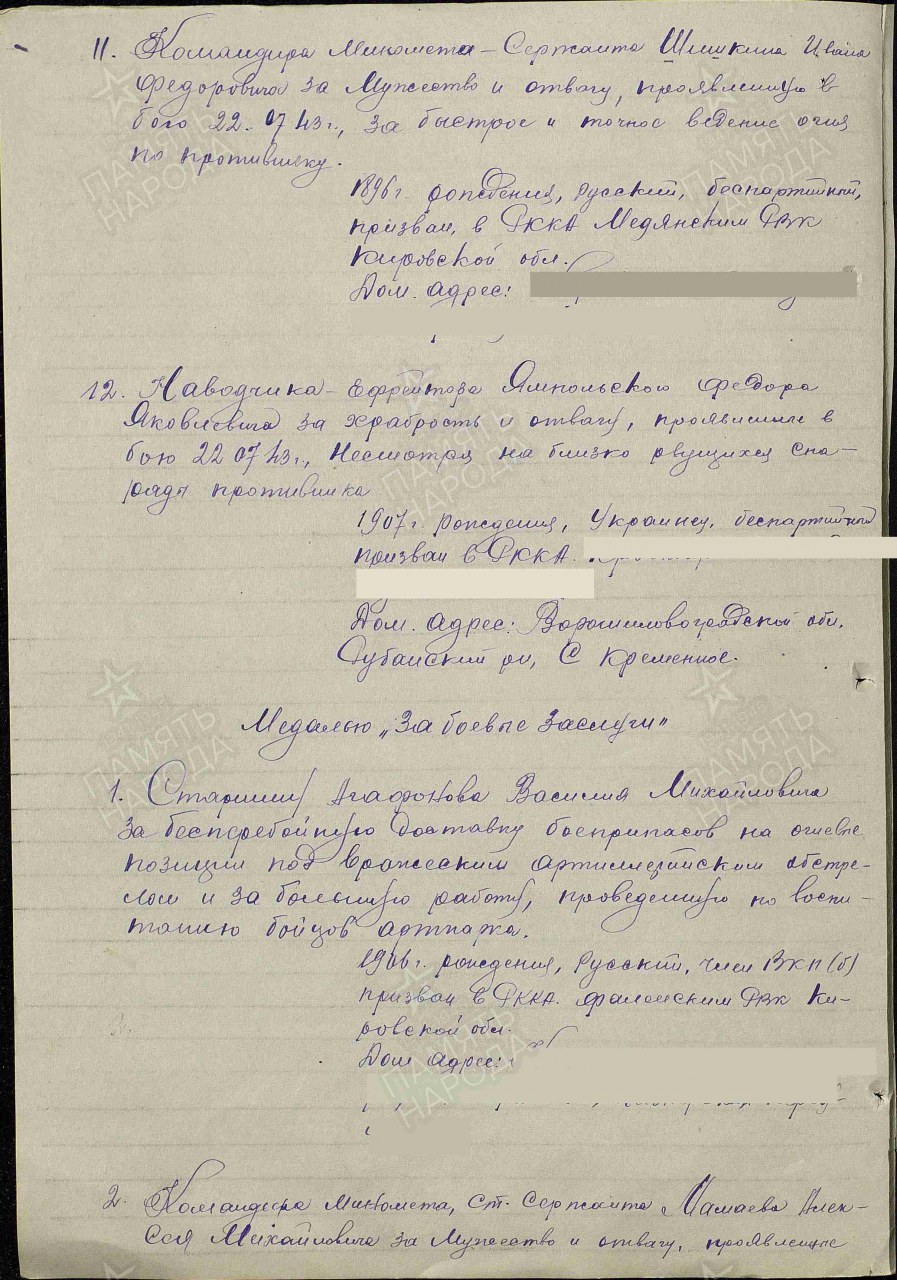 11. Командира Миномета – Сержанта Шишкина Ивана
Федоровича за Мужество и отвагу, проявленную в
бою 22.07.43г., за быстрое и точное ведение огня
по противнику.
1896г. рождения, Русский, беспартийный,
призван в РККА Медянским РВК
Кировской обл.
Дом. адрес:
12. Наводчика – Ефрейтора Ямпольского Федора
Яковлевича за храбрость и отвагу, проявленные в
бою 22 07 43г., Несмотря на близко рвущихся сна-
ряды противника
1907г. рождения, Украинец, беспартийный
призван в РККА.
Дом. адрес: Ворошиловоградской обл.
С Кременное.
Медалью „За боевые Заслуги"
1. Старшину Агафонова Василия Михайловича
за бесперебойную доставку боеприпасов на огневые
позиции под вражеским артиллерийским обстре-
лом и за большую работу, проведенную по воспи-
танию бойцов артпарка.
1906г. рождения, Русский, член ВКП(б)
призван в РККА. Фаленским РВК Ки-
ровской обл.
Дом адрес:
2. Командира миномета, ст. Сержанта Мамаева Алек-
сея Михайловича за Мужество и отвагу, проявленные
ПАМЯТЬ
НАРОДА